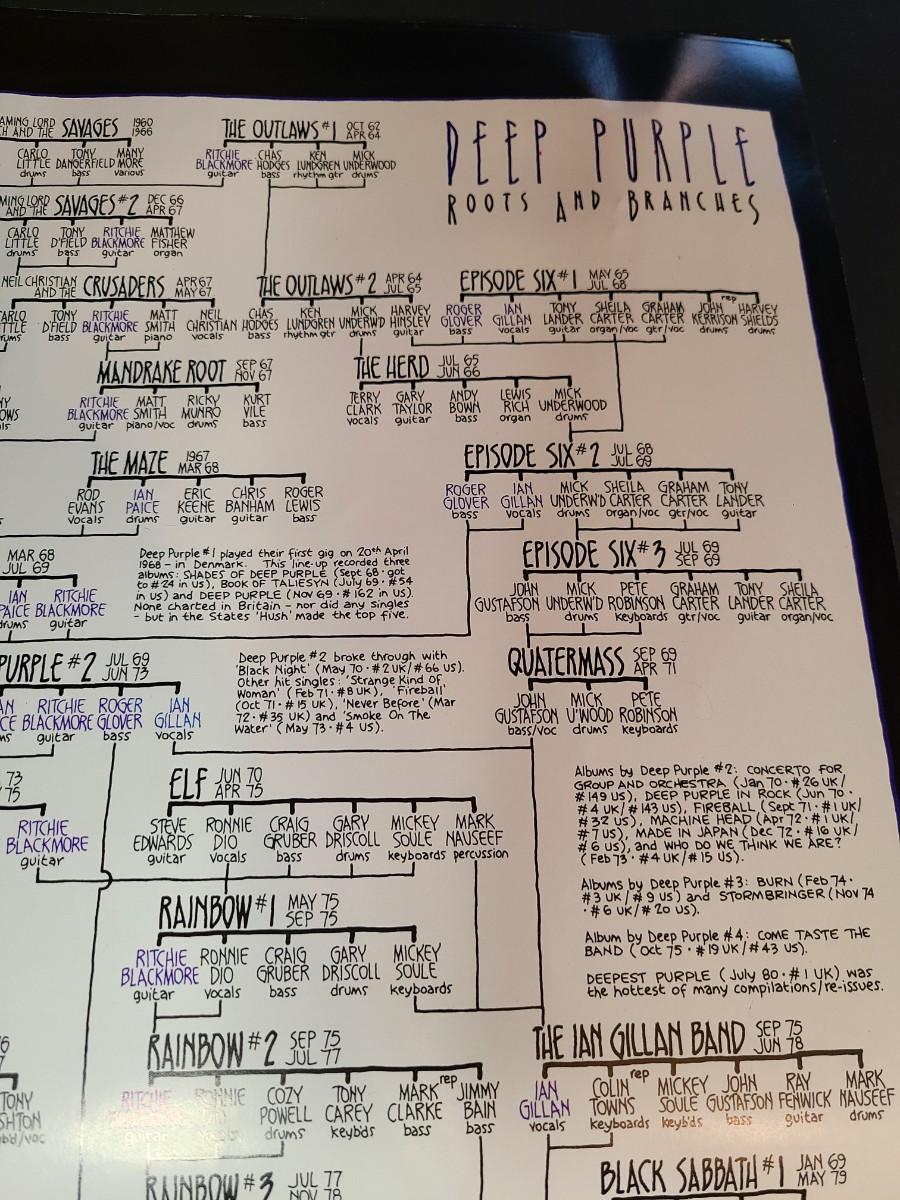 AMING LORD
CH AND THE SAVAGES 1960
1966
CARLO LITTLE drums TONY DANGERFIELD bass MANY MORE various
THE OUTLAWS #1 OCT 62
APR 64
RITCHIE BLACKMORE guitar CHAS HODGES bass KEN LUNDGREN rhythm gtr MICK UNDERWOOD drums
DEEP PURPLE
ROOTS AND BRANCHES
MING LORD
AND THE SAVAGES #2 DEC 66
APR 67
CARLO LITTLE drums TONY D'FIELD bass RITCHIE BLACKMORE guitar MATTHEW FISHER organ
NEIL CHRISTIAN
AND THE CRUSADERS APR 67
MAY 67
CARLO LITTLE drums TONY D'FIELD bass RITCHIE BLACKMORE guitar MATT SMITH piano NEIL CHRISTIAN vocals
THE OUTLAWS #2 APR 64
JUL 65
CHAS HODGES bass KEN LUNDGREN rhythm gtr MICK UNDERWD drums HARVEY HINSLEY guitar
EPISODE SIX #1 MAY 65
JUL 68
ROGER GLOVER bass IAN GILLAN vocals TONY LANDER guitar SHEILA CARTER organ/voc GRAHAM CARTER gtr/voc JOHN KERRISON drums rep HARVEY SHIELDS drums
MANDRAKE ROOT SEP 67
NOV 67
RITCHIE BLACKMORE guitar MATT SMITH piano/voc RICKY MUNRO drums KURT VILE bass
THE HERD JUL 65
JUN 66
TERRY CLARK vocals GARY TAYLOR guitar ANDY BOWN bass LEWIS RICH organ MICK UNDERWOOD drums
THE MAZE 1967
MAR 68
ROD EVANS vocals IAN PAICE drums ERIC KEENE guitar CHRIS BANHAM guitar ROGER LEWIS bass
EPISODE SIX #2 JUL 68
JUL 69
ROGER GLOVER bass IAN GILLAN vocals MICK UNDERW'D drums SHEILA CARTER organ/voc GRAHAM CARTER gtr/voc TONY LANDER guitar
MAR 68
JUL 69
IAN PAICE drums RITCHIE BLACKMORE guitar
Deep Purple #1 played their first gig on 20th April
1968 – in Denmark. This line-up recorded three
albums: SHADES OF DEEP PURPLE (Sept 68 · got
to #24 in US), BOOK OF TALIESYN (July 69 · #54
in US) and DEEP PURPLE (Nov 69 · #162 in US).
None charted in Britain – nor did any singles
– but in the States 'Hush' made the top five.
EPISODE SIX #3 JUL 69
SEP 69
JOHN GUSTAFSON bass MICK UNDERW'D drums PETE ROBINSON keyboards GRAHAM CARTER gtr/voc TONY LANDER guitar SHEILA CARTER organ/voc
PURPLE #2 JUL 69
JUN 73
RITCHIE BLACKMORE guitar ROGER GLOVER bass IAN GILLAN vocals
Deep Purple #2 broke through with
'Black Night' (May 70 · #2 UK/#66 US).
Other hit singles: 'Strange Kind Of
Woman' (Feb 71 · #8 UK), 'Fireball'
(Oct 71 · #15 UK), 'Never Before' (Mar
72 · #35 UK) and 'Smoke On The
Water' (May 73 · #4 US).
QUATERMASS SEP 69
APR 71
JOHN GUSTAFSON bass/voc MICK U'WOOD drums PETE ROBINSON keyboards
Albums by Deep Purple #2: CONCERTO FOR
GROUP AND ORCHESTRA (Jan 70 · #26 UK/
#149 US), DEEP PURPLE IN ROCK (Jun 70 ·
#4 UK/#143 US), FIREBALL (Sept 71 · #1 UK/
#32 US), MACHINE HEAD (Apr 72 · #1 UK/
#7 US), MADE IN JAPAN (Dec 72 · #16 UK/
#6 US), and WHO DO WE THINK WE ARE?
(Feb 73 · #4 UK/#15 US).
Albums by Deep Purple #3: BURN (Feb 74 ·
#3 UK/#9 US) and STORMBRINGER (Nov 74
· #6 UK/#20 US).
Album by Deep Purple #4: COME TASTE THE
BAND (Oct 75 · #19 UK/#43 US).
DEEPEST PURPLE (July 80 · #1 UK) was
the hottest of many compilations/re-issues.
73
75
RITCHIE BLACKMORE guitar
ELF JUN 70
APR 75
STEVE EDWARDS guitar RONNIE DIO vocals CRAIG GRUBER bass GARY DRISCOLL drums MICKEY SOULE keyboards MARK NAUSEEF percussion
RAINBOW #1 MAY 75
SEP 75
RITCHIE BLACKMORE guitar RONNIE DIO vocals CRAIG GRUBER bass GARY DRISCOLL drums MICKEY SOULE keyboards
RAINBOW #2 SEP 75
JUL 77
RITCHIE guitar RONNIE COZY POWELL drums TONY CAREY keyb'ds MARK CLARKE bass rep JIMMY BAIN bass
TONY
SHTON
kb'd/voc
THE IAN GILLAN BAND SEP 75
JUN 78
IAN GILLAN vocals COLIN TOWNS keyboards rep MICKEY SOULE keyb'ds JOHN GUSTAFSON bass RAY FENWICK guitar MARK NAUSEEF drums
RAINBOW #3 JUL 77
NOV 78
BLACK SABBATH #1 JAN 69
MAY 79